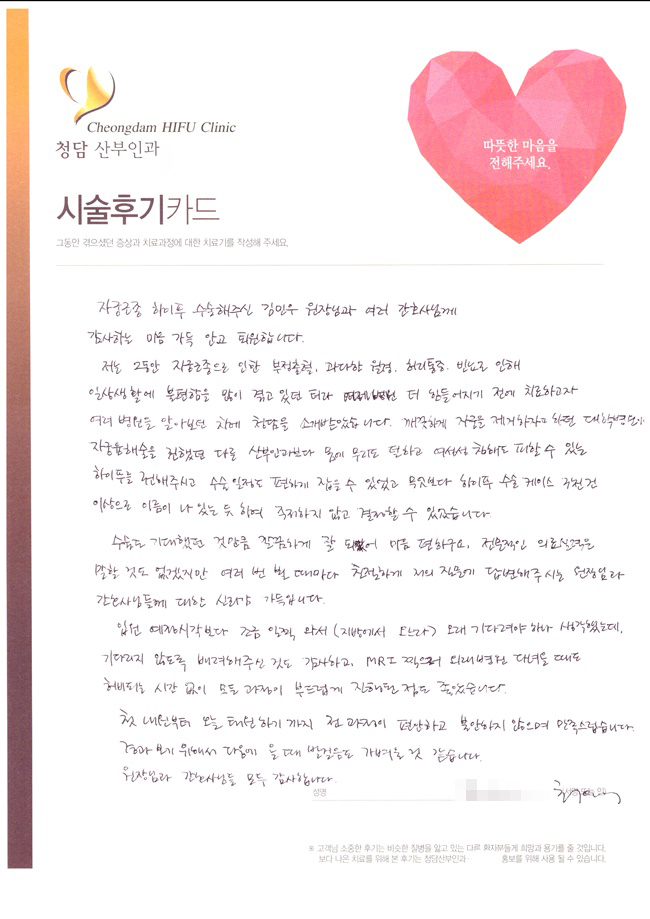 Cheongdam HIFU Clinic
청담 산부인과
따뜻한 마음을
전해주세요.
시술후기카드
그동안 겪으셨던 증상과 치료과정에 대한 치료기를 작성해 주세요.
자궁근종 하이푸 수술해주신 김민우 원장님과 여러 간호사님께
감사하는 마음 가득 안고 퇴원합니다.
저는 2동안 자궁근종으로 인한 부정출혈, 과다한 월경, 허리통증, 빈뇨로 인해
일상생활에 불편함을 많이 겪고 있던 터라 더 힘들어지기 전에 치료하고자
여러 병원을 알아보던 차에 청담을 소개받았습니다. 깨끗하게 자궁을 제거하자고 하던 대학병원이나
자궁을 권했던 다른 산부인과보다 몸에 무리도 덜하고 침해도 피할 수 있는
하이푸를 권해주시고 수술 일정도 편하게 잡을 수 있었고 무엇보다 하이푸 수술 케이스
이상으로 이름이 나 있는 듯 하여 주저하지 않고 결정할 수 있었습니다.
수술도 기대했던 것만큼 깔끔하게 잘 되었어 마음 편하구요, 전문적인 의료실력은
말할 것도 없겠지만 여러 번 뵐 때마다 친절하게 저의 질문에 답변해주시는 원장님과
간호사님들께 대한 신뢰가 가득합니다.
입원 예정시각보다 조금 일찍 와서 (지방에서 오느라) 오래 기다려야하나 생각했는데,
기다리지 않도록 배려해주신 것도 감사하고, MRI 찍으러 외래병원 다녀올 때도
허비되는 시간 없이 모든 과정이 부드럽게 진행된 점도 좋았습니다.
첫 내원부터 오늘 퇴원하기 까지 전 과정이 편안하고 불안하지 않으며 만족스럽습니다.
경과 보기 위해서 다음에 올 때 발걸음도 가벼울 것 같습니다.
원장님과 간호사님들 모두 감사합니다.
성명
※ 고객님 소중한 후기는 비슷한 질병을 앓고 있는 다른 환자분들게 희망과 용기를 줄 것입니다.
보다 나은 치료를 위해 본 후기는 청담산부인과 홍보를 위해 사용 될 수 있습니다.